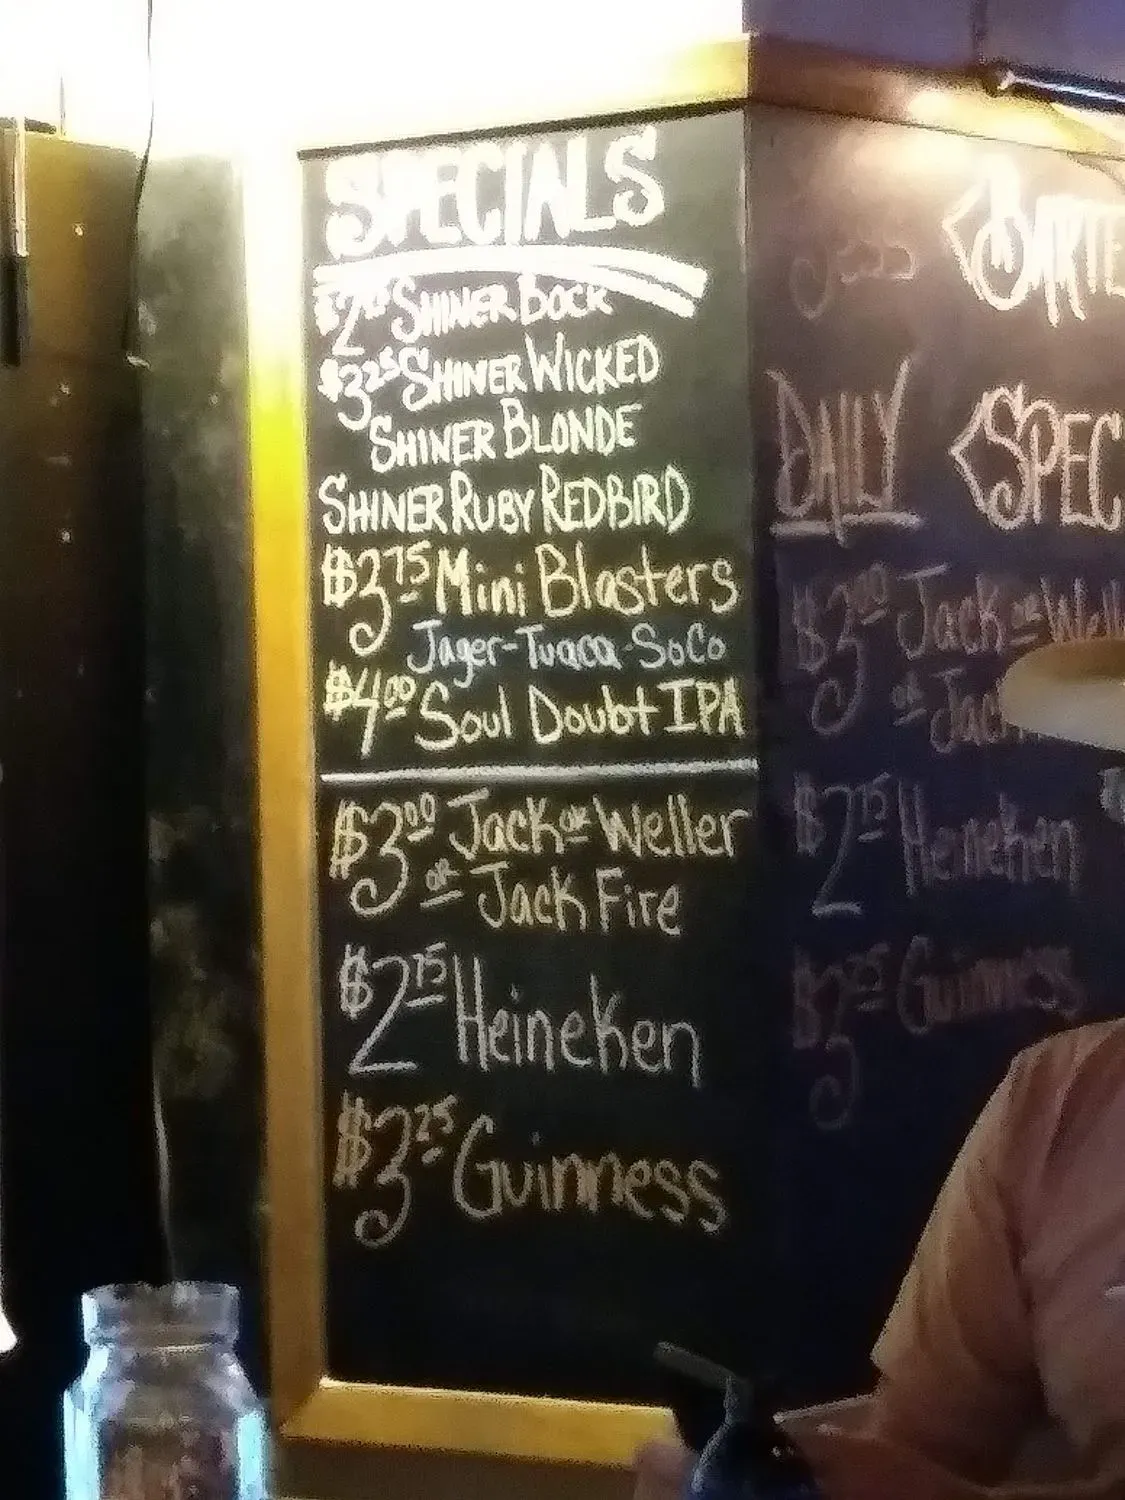 SPECIALS
SHINER BOCK
$3.25 SHINER WICKED
SHINER BLONDE
SHINER RUBY REDBIRD
$3.75 Mini Blasters
Jager-Tuaca-SoCo
$4.00 Soul Doubt IPA
$3.00 Jack or Weller
or Jack Fire
$2.75 Heineken
$3.25 Guinness
DAILY
$3.00 Jack or
or
$2.75 Heineken
$3.25 Guinness